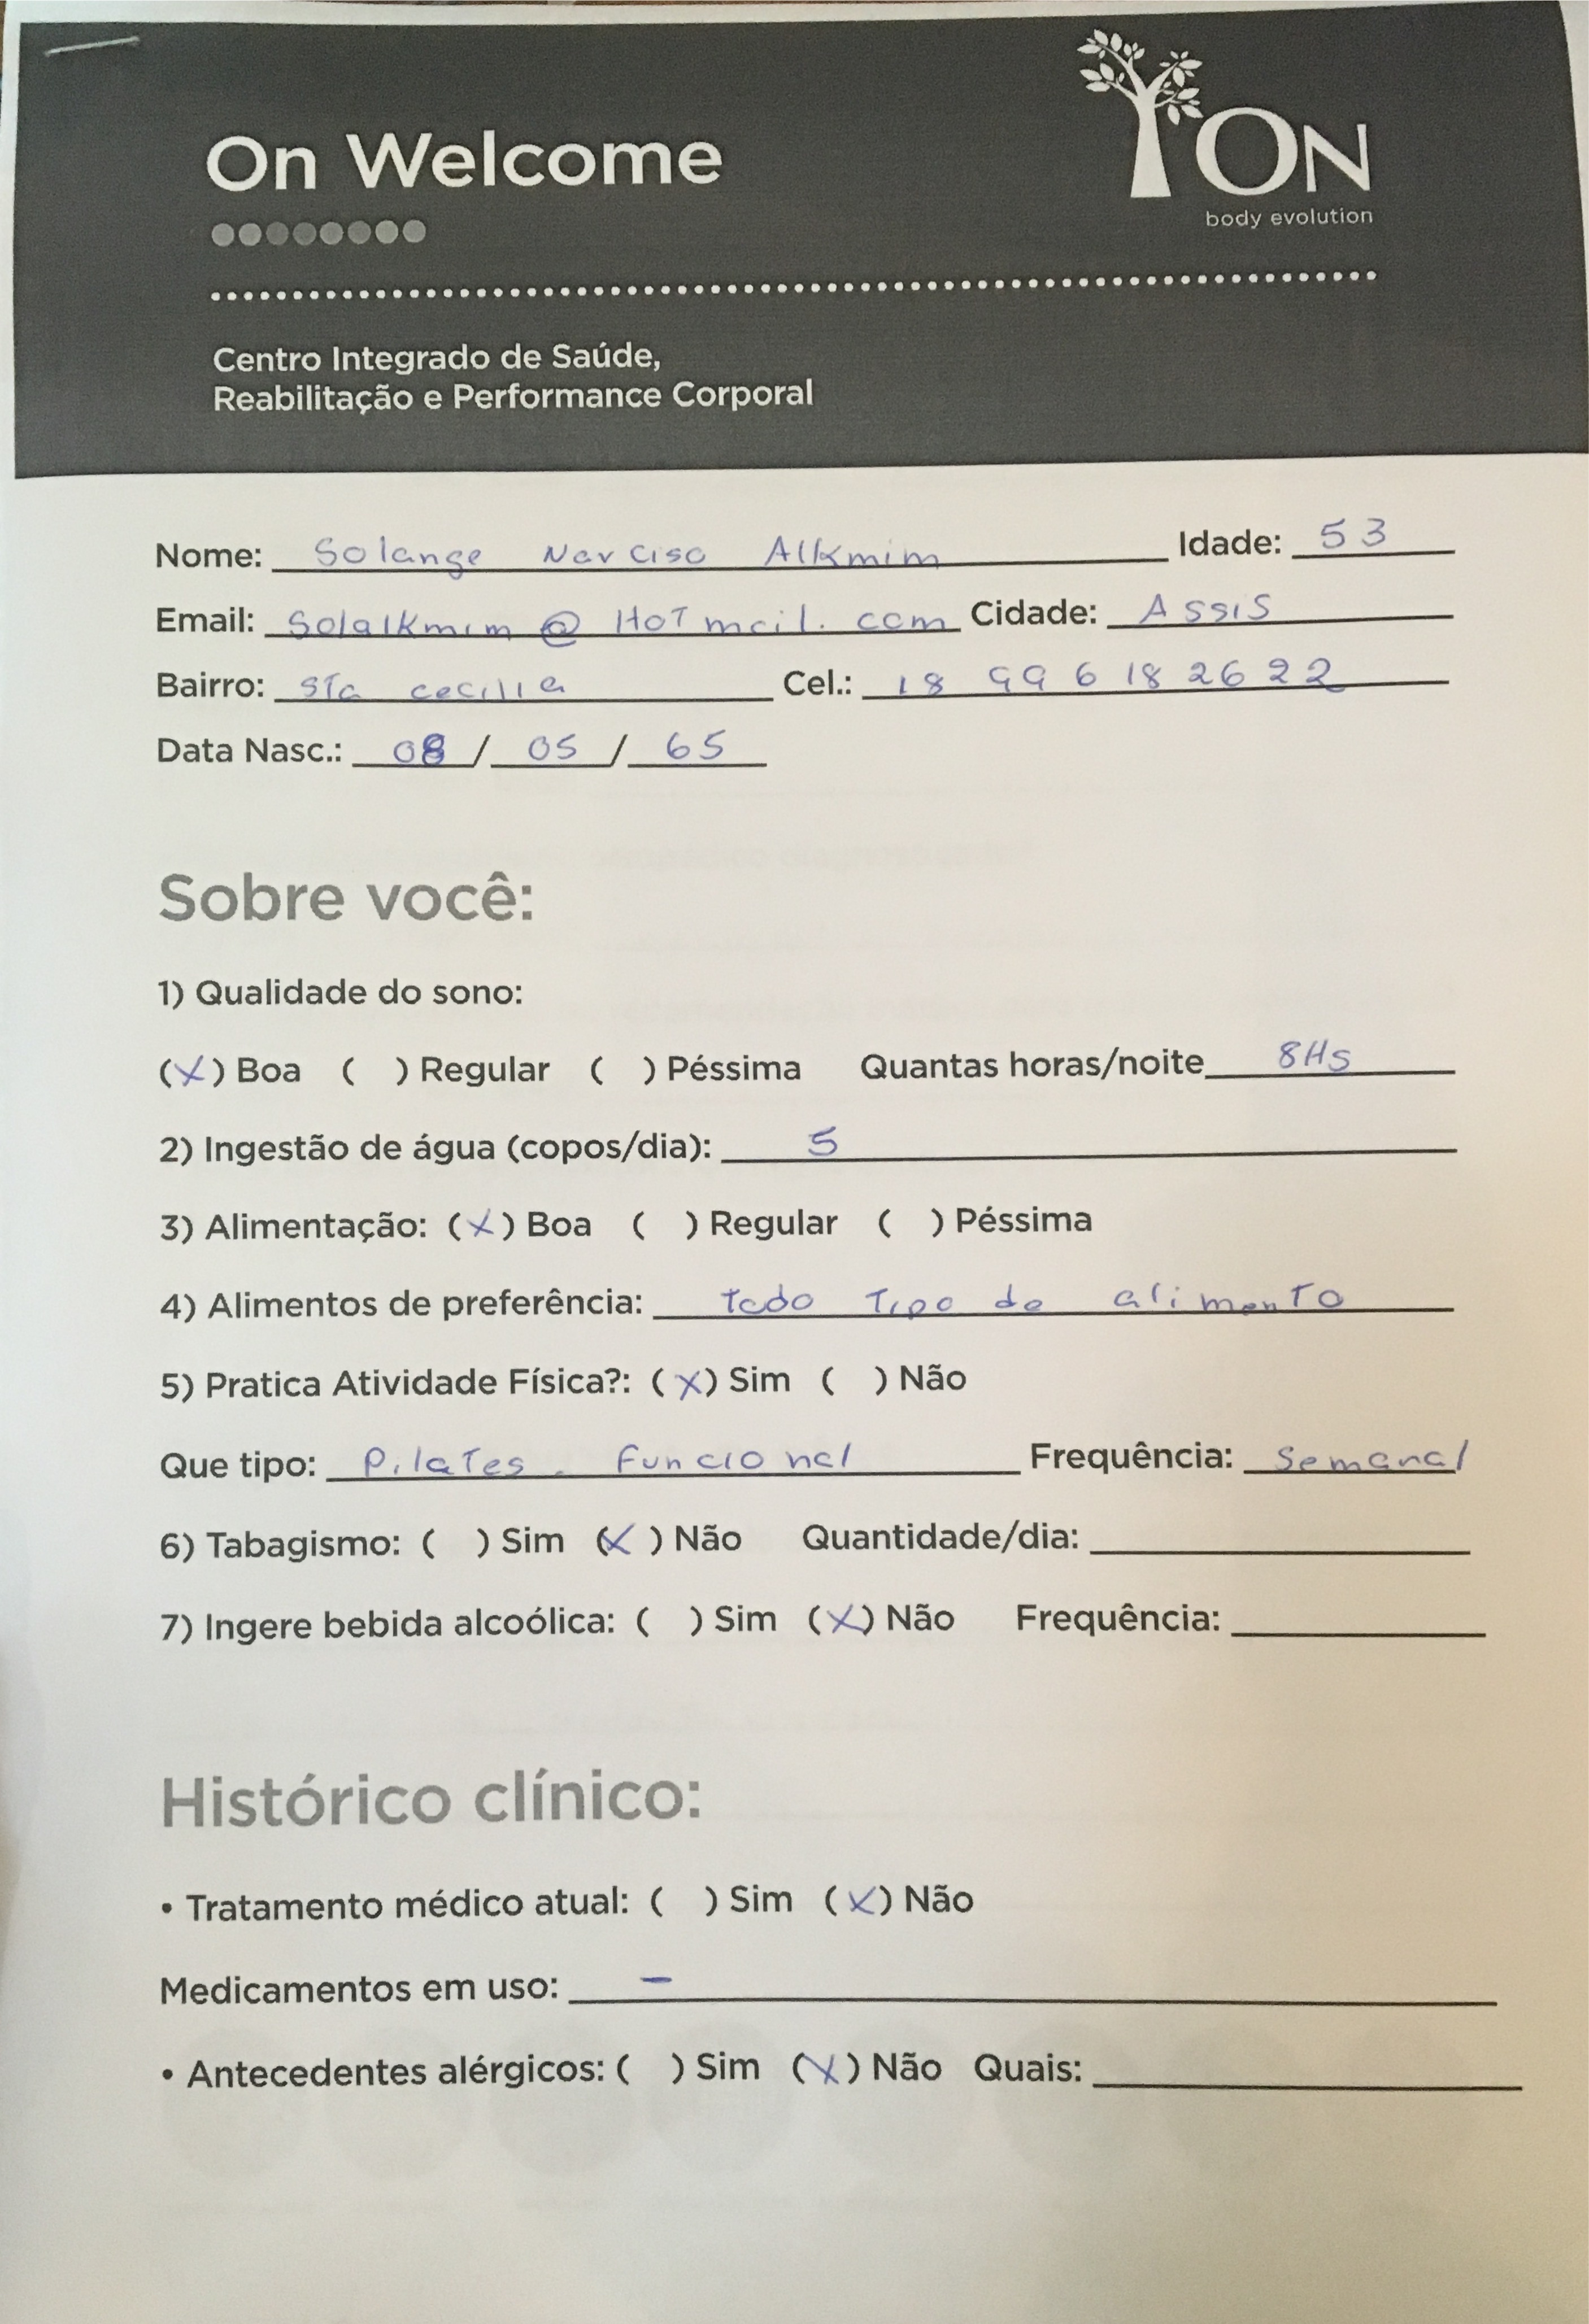 On Welcome
ON
body evolution
Centro Integrado de Saúde,
Reabilitação e Performance Corporal
Nome: Solange Narciso Alkmim Idade: 53
Email: Solalkmim @ HoTmail. com Cidade: Assis
Bairro: STa cecilia Cel.: 18 99 6 18 26 22
Data Nasc.: 08 / 05 / 65
Sobre você:
1) Qualidade do sono:
(X) Boa ( ) Regular ( ) Péssima Quantas horas/noite 8Hs
2) Ingestão de água (copos/dia): 5
3) Alimentação: (X) Boa ( ) Regular ( ) Péssima
4) Alimentos de preferência: Todo Tipo de alimenTo
5) Pratica Atividade Física?: (X) Sim ( ) Não
Que tipo: PilaTes. Funcional Frequência: Semanal
6) Tabagismo: ( ) Sim (X) Não Quantidade/dia:
7) Ingere bebida alcoólica: ( ) Sim (X) Não Frequência:
Histórico clínico:
• Tratamento médico atual: ( ) Sim (X) Não
Medicamentos em uso: –
• Antecedentes alérgicos: ( ) Sim (X) Não Quais: